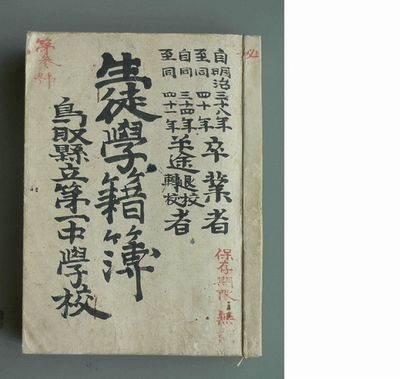 秘
自明治三十八年
至同四十年
卒業者
自同三十四年
至同四十一年
半途退校
轉校
者
生徒學籍簿
鳥取縣立第一中學校
保存期限無